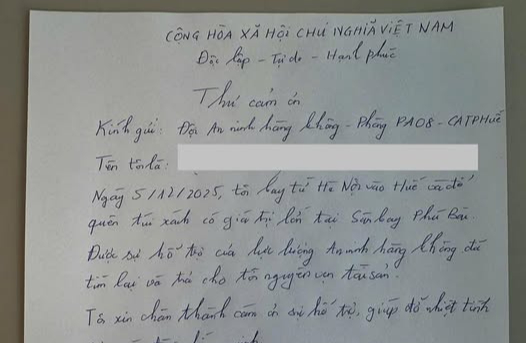 CỘNG HÒA XÃ HỘI CHỦ NGHĨA VIỆT NAM
Độc lập - Tự do - Hạnh phúc
Thư cảm ơn
Kính gửi: Đội An ninh hàng không - Phòng PA08 - CATPHuế
Tên tôi là:
Ngày 5/12/2025, tôi bay từ Hà Nội vào Huế và để
quên túi xách có giá trị lớn tại Sân bay Phú Bài.
Được sự hỗ trợ của lực lượng An ninh hàng không đã
tìm lại và trả cho tôi nguyên vẹn tài sản.
Tôi xin chân thành cảm ơn sự hỗ trợ, giúp đỡ nhiệt tình